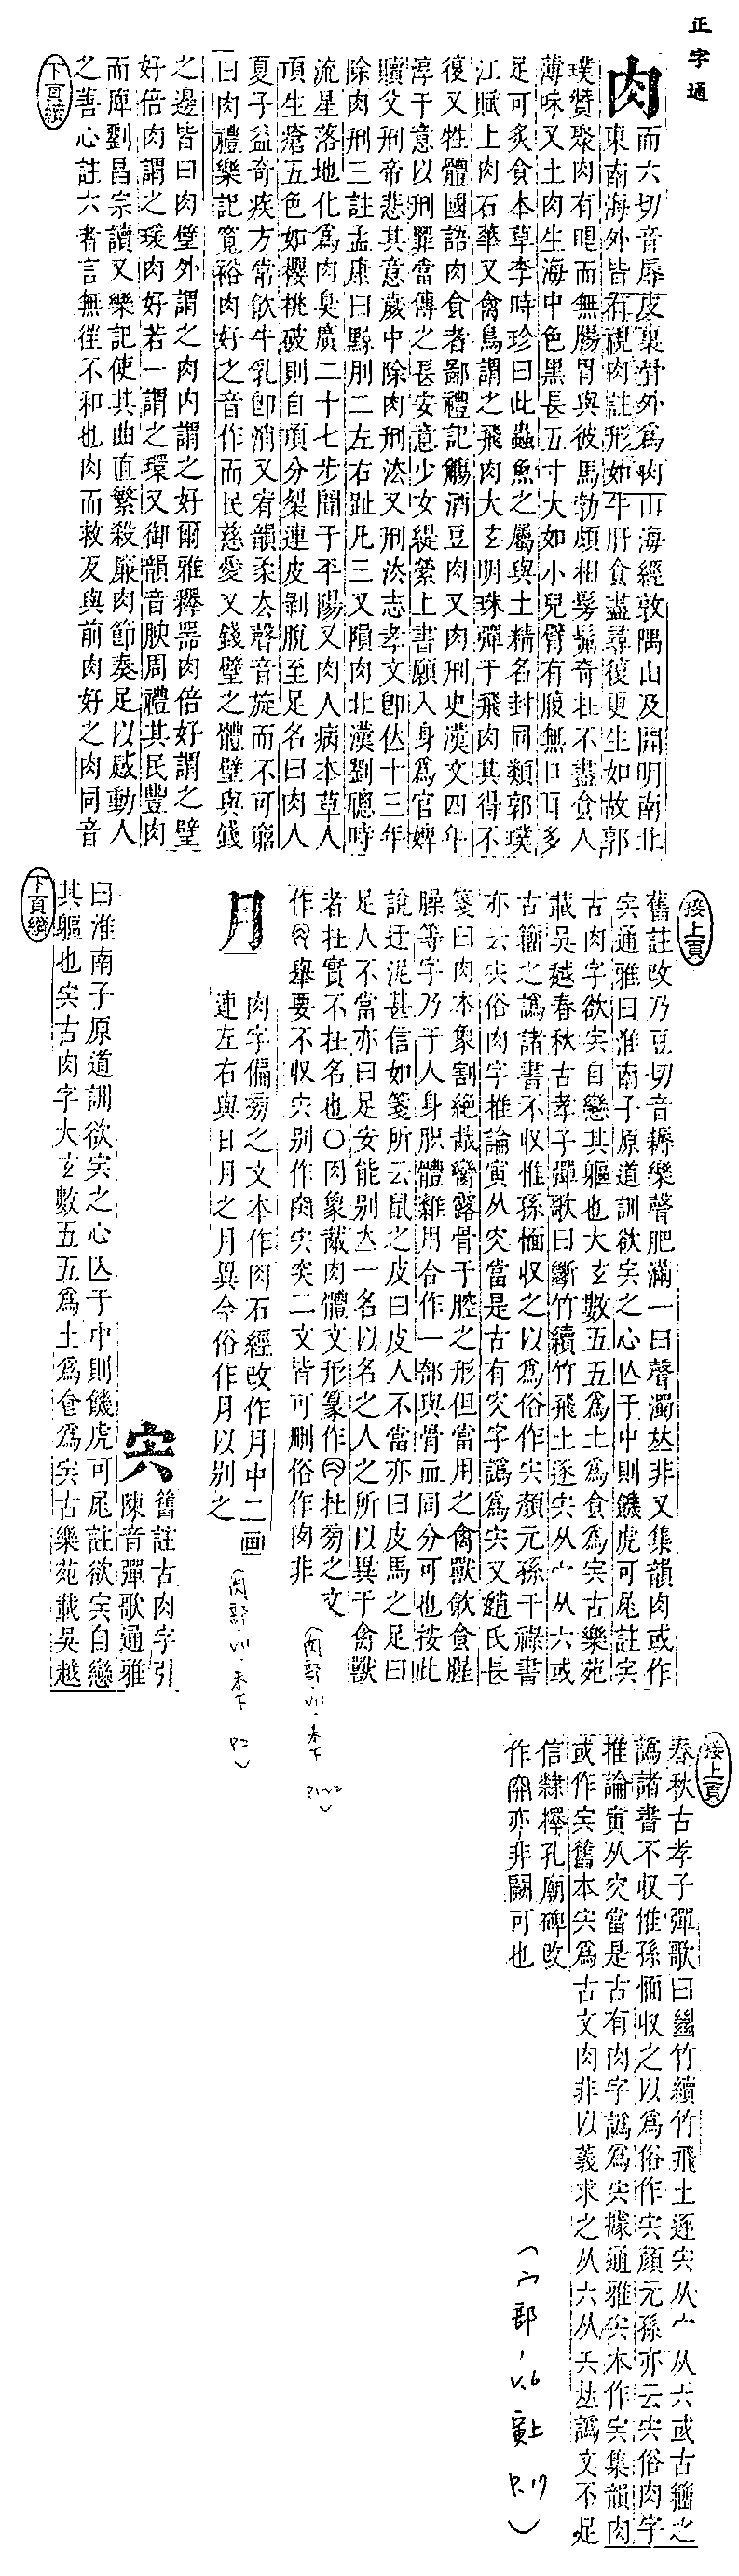 正字通
肉
而六切音辱皮裏骨外爲肉山海經敦隅山及開明南北
東南海外皆有視肉註形如牛肝食盡尋復更生如故郭
璞贊聚肉有眼而無腸胃與彼馬勃頗相髣髴奇在不盡食人
薄味又土肉生海中色黑長五寸大如小兒臂有腹無口耳多
足可炙食本草李時珍曰此蟲魚之屬與土精名封同類郭璞
江賦土肉石華又禽鳥謂之飛肉大玄明珠彈于飛肉其得不
復又牲體國語肉食者鄙禮記觴酒豆肉又肉刑史漢文四年
淳于意以刑罪當傳之長安意少女緹縈上書願入身爲官婢
贖父刑帝悲其意歲中除肉刑法又刑法志孝文卽位十三年
除肉刑三註孟康曰黥刖二左右趾凡三又隕肉北漢劉聰時
流星落地化爲肉臭廣二十七步聞于平陽又肉人病本草人
頂生瘡五色如櫻桃破則自頂分裂連皮剝脫至足名曰肉人
夏子益奇疾方常飲牛乳卽消又宥韻柔去聲音旋而不可窮
曰肉禮樂記寬裕肉好之音作而民慈愛又錢璧之體璧與錢
之邊皆曰肉璧外謂之肉內謂之好爾雅釋器肉倍好謂之璧
好倍肉謂之瑗肉好若一謂之環又御韻音腴周禮其民豐肉
而庳劉昌宗讀又樂記使其曲直繁殺廉肉節奏足以感動人
之善心註六者言無往不和也肉而救反與前肉好之肉同音
下頁續
接上頁
舊註改乃豆切音耨樂聲肥滿一曰聲濁𠀤非又集韻肉或作
宍通雅曰淮南子原道訓欲宍之心亾于中則饑虎可尾註宍
古肉字欲宍自戀其軀也大玄數五五爲土爲食爲宍古樂苑
載吳越春秋古孝子彈歌曰斷竹續竹飛土逐宍从宀从六或
古籀之譌諸書不收惟孫愐收之以爲俗作宍顏元孫干祿書
亦云宍俗肉字推論寅从宍當是古有宍字譌爲宍又趙氏長
箋曰肉本象割絕胾臠露骨于腔之形但當用之禽獸飲食腥
臊等字乃于人身肢體雜用合作一部與骨血同分可也按此
說迂泥甚信如箋所云鼠之皮曰皮人不當亦曰皮馬之足曰
足人不當亦曰足安能别立一名以名之人之所以異于禽獸
者在實不在名也○肉象胾肉體文形篆作𠕎在㫄之文
作𠕎舉要不收宍别作𡇒宍宊二文皆可刪俗作肉非
(肉部.VII.未下 P.1~2)
月
肉字偏㫄之文本作肉石經改作月中二画
連左右與日月之月異今俗作月以别之
(肉部.VII.未下 P.2)
宍
舊註古肉字引
陳音彈歌通雅
曰淮南子原道訓欲宍之心亾于中則饑虎可尾註欲宍自戀
其軀也宍古肉字大玄數五五爲土爲食爲宍古樂苑載吳越
下頁續
接上頁
春秋古孝子彈歌曰斷竹續竹飛土逐宍从宀从六或古籀之
譌諸書不收惟孫愐收之以爲俗作宍顏元孫亦云宍俗肉字
推論寅从宍當是古有肉字譌爲宍據通雅宍本作宍集韻肉
或作宍舊本宍爲古文肉非以義求之从六从宍𠀤譌文不足
信隸釋孔廟碑改
作𡇒亦非闕可也
(宀部,V.6 寅上 P.17)